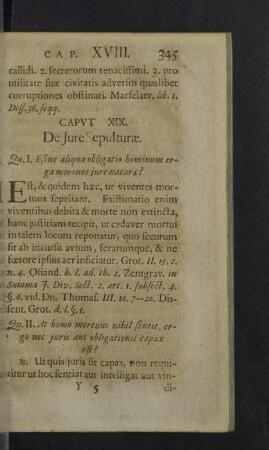 CAP. XVIII. 345
callidi. 2. secretorum tenacissimi. 3. pro
utilitate suæ civitatis adversus quaslibet
corruptiones obstinati. Marselaer. lib. 1.
Diss. 38. seqq.
CAPVT XIX.
De Jure Sepulturæ.
Qu. I. Estne aliqua obligatio hominum er-
ga mortuos jure naturæ?
Est, & quidem hæc, ut viventes mor-
tuos sepeliant. Existimatio enim
viventibus debita & morte non extincta,
hanc justitiam recipit, ut cadaver mortui
in talem locum reponatur, quo securum
sit ab incursu avium, ferarumque, & ne
fœtore ipsius aer inficiatur. Grot. II. 19. 2.
n. 4. Osiand. h. l. ad th. 2. Zentgrav. in
Summa J. Div. Sect. 2. art. 1. subsect. 4.
§. 6. vid. Dn. Thomas. III. 10. 7--20. Dis-
sent. Grot. d. l. §. 1.
Qu. II. At homo mortuus nihil sentit, er-
go nec juris aut obligationis capax
est?
℞. Ut quis juris sit capax, non requi-
ritur ut hoc sentiat aut intelligat aut vin-
Y 5 di-